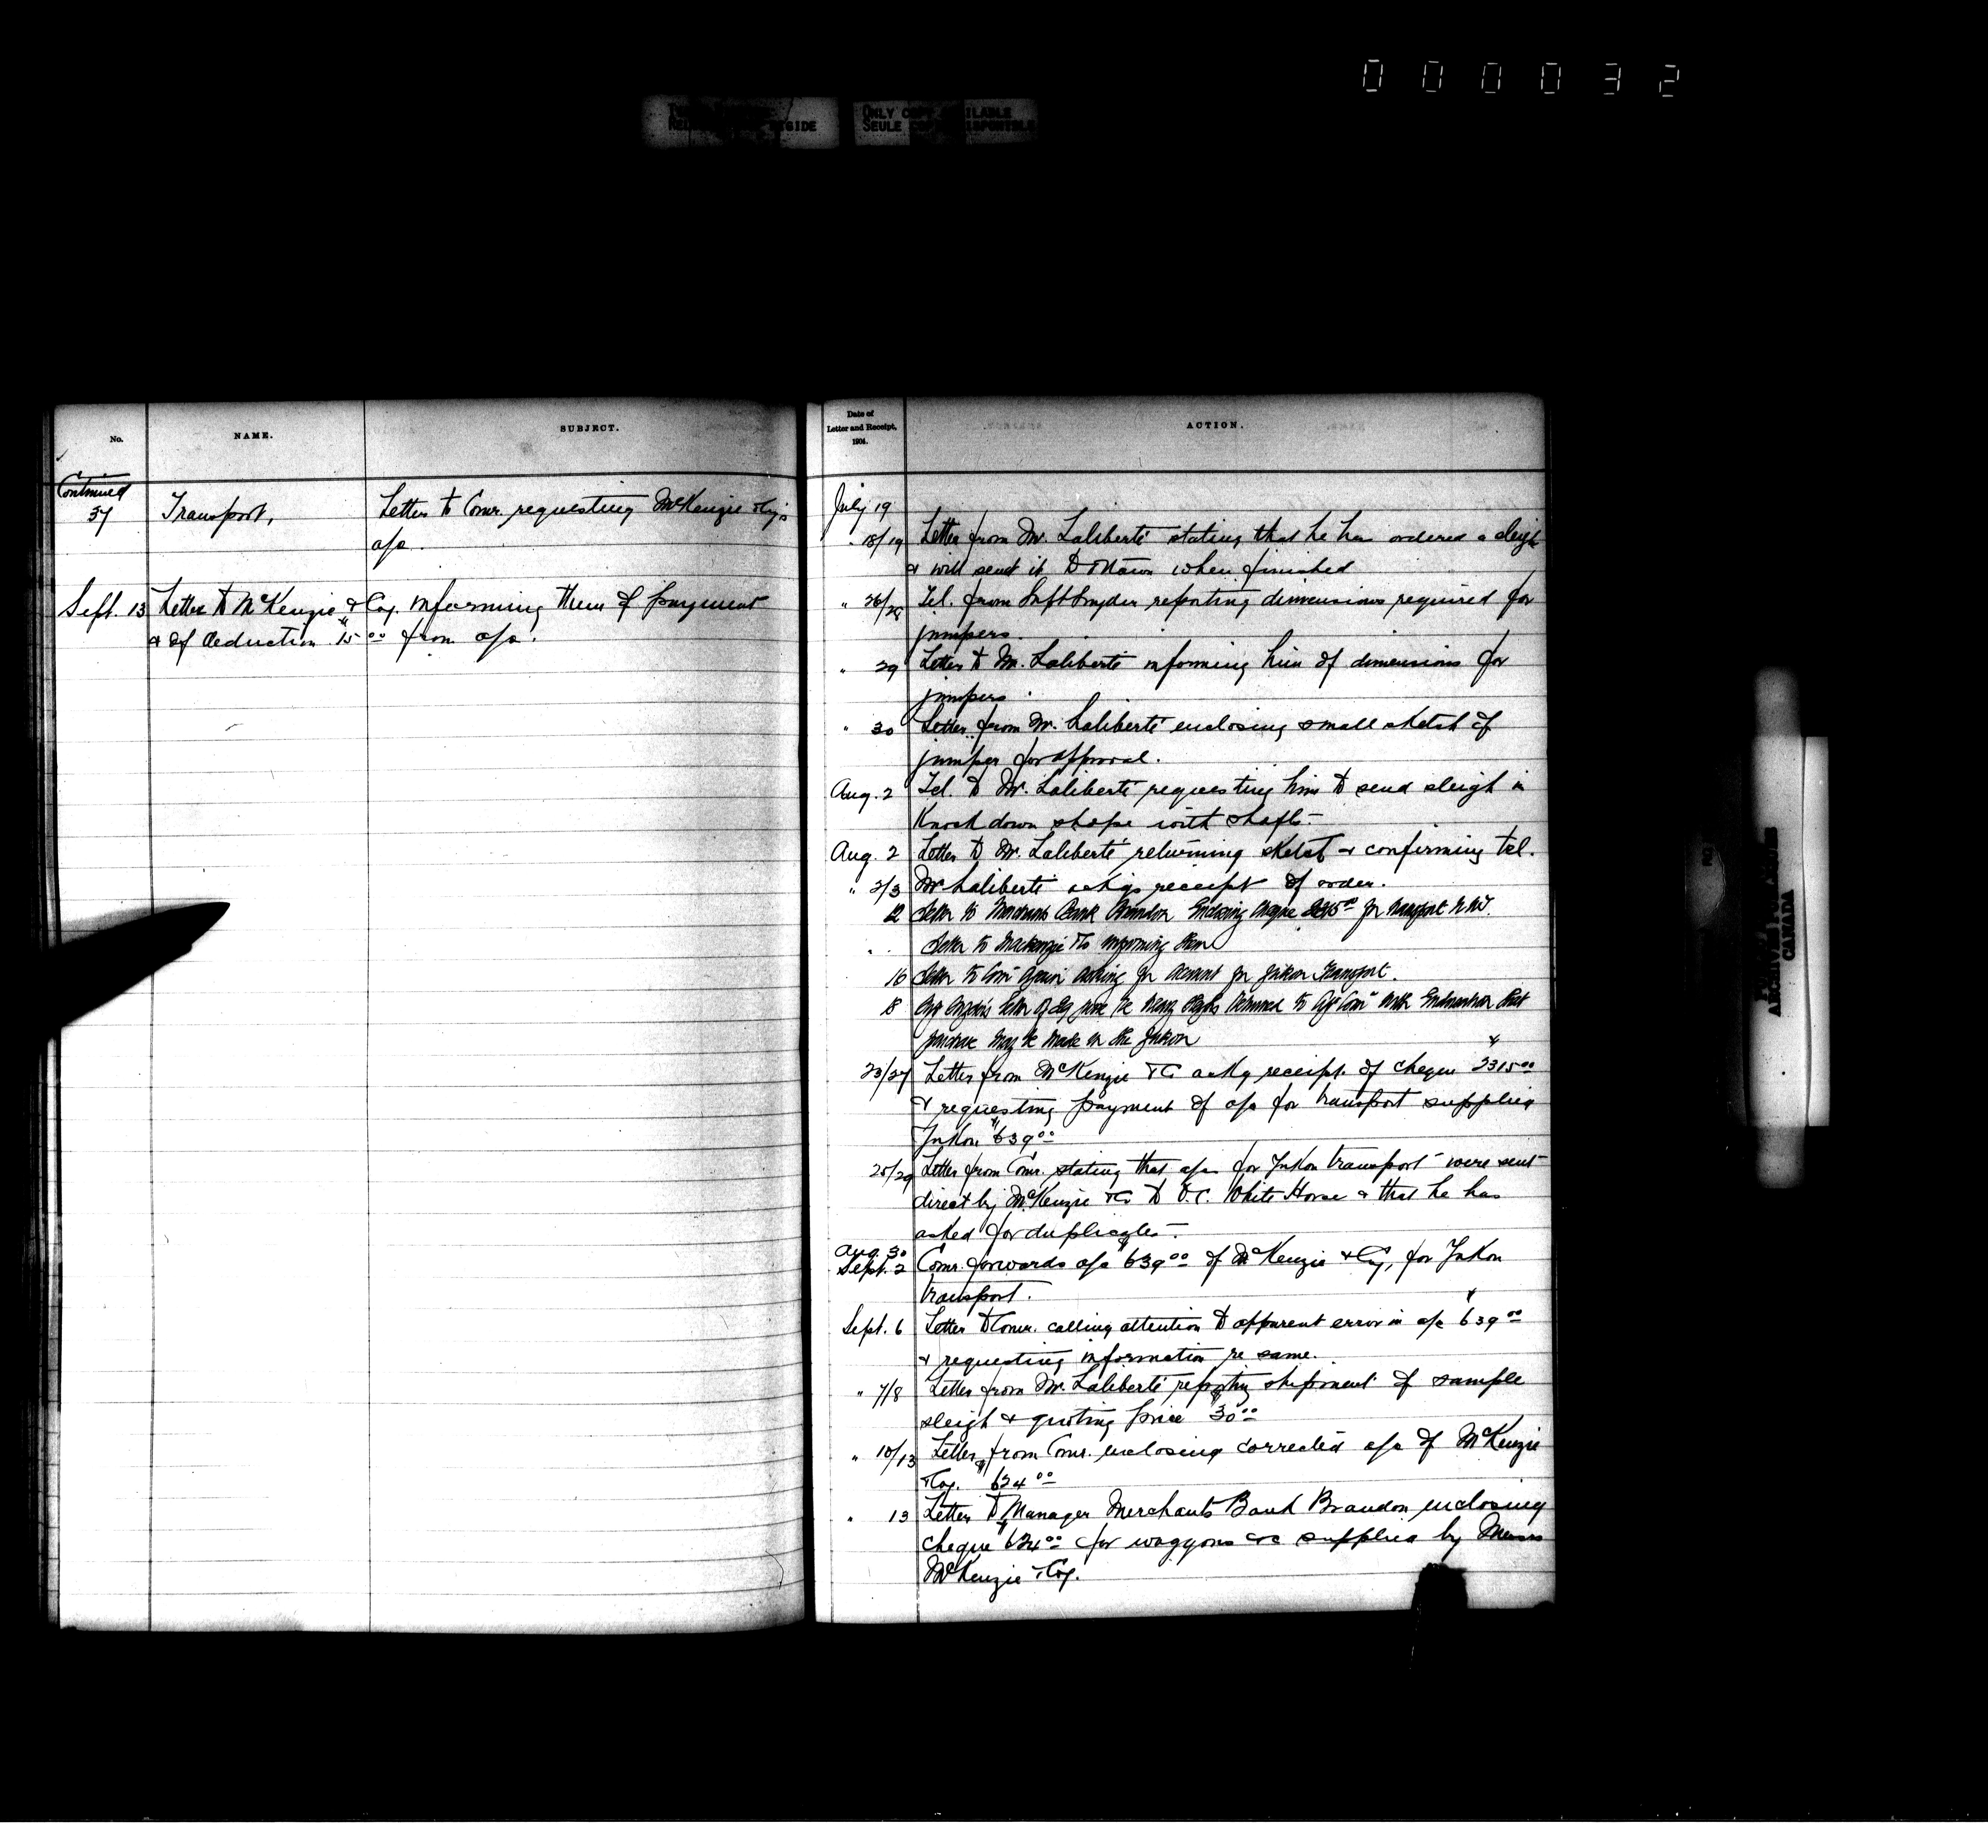 0 0 0 0 3 2
ONLY COPY AVAILABLE
SEULE COPIE DISPONIBLE
No.
NAME.
SUBJECT.
Continued
37 Transport, Letter to Comr. requesting McKenzie & Coy's
a/c.
Sept. 13 Letter to McKenzie & Coy. informing them of payment
& of deduction $15 00 from a/c.
Date of
Letter and Receipt,
1904.
ACTION.
July 19
" 18/19 Letter from Mr. Laliberté stating that he has ordered a sleigh
& will send it to Ottawa when finished
" 26/28 Tel. from Supt Snyder reporting dimensions required for
jumpers.
" 29 Letter to Mr. Laliberté informing him of dimensions for
jumpers.
" 30 Letter from Mr. Laliberté enclosing small sketch of
jumper for approval.
Aug. 2 Tel. to Mr. Laliberté requesting him to send sleigh in
Knock down shape with shafts
Aug. 2 Letter to Mr. Laliberté returning sketch & confirming tel.
" 2/3 Mr Laliberté ack'gs receipt of order.
12 Letter to Merchants Bank Brandon Enclosing cheque for transport N.W.T.
" Letter to Mackenzie & Co informing them
16 Letter to Comr again asking for account for Yukon Transport.
18 Supt Snyder's letter of June re Sleighs returned to Comr with that
purchase may be made in the Yukon
23/27 Letter from McKenzie & Co ack'g receipt of cheque $2315 00
& requesting payment of a/c for transport supplied
Yukon $639 00
25/29 Letter from Comr. stating that a/cs for Yukon transport were sent
direct by McKenzie & Co to O.C. White Horse & that he has
asked for duplicates
Aug. 30
Sept. 2 Comr. forwards a/c $639 00 of McKenzie & Coy, for Yukon
transport.
Sept. 6 Letter to Comr. calling attention to apparent error in a/c $639 00
& requesting information re same.
" 7/8 Letter from Mr. Laliberté reporting shipment of sample
sleigh & quoting price $30 00
" 10/13 Letter from Comr. enclosing corrected a/c of McKenzie
& Coy. $624 00
" 13 Letter to Manager Merchants Bank Brandon enclosing
cheque $624 00 for waggons &c supplied by Messrs
McKenzie & Coy.
CANADA